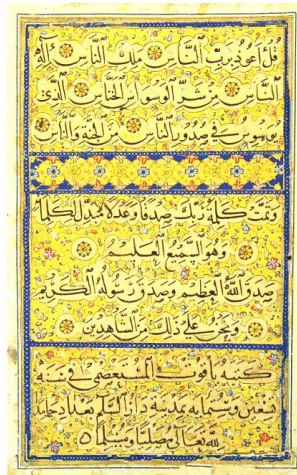 قل أعوذ برب الناس ملك الناس إله
الناس من شر الوسواس الخناس الذي
يوسوس في صدور الناس من الجنة والناس
وتمت كلمة ربك صدقا وعدلا لا مبدل لكلماته
وهو السميع العليم
صدق الله العظيم وصدق رسوله الكريم
ونحن على ذلك من الشاهدين
كتبه ياقوت المستعصمي في سنة
تسعين وستمائة بمدينة دار السلام بغداد حامدا
لله تعالى ومصليا ومسلما